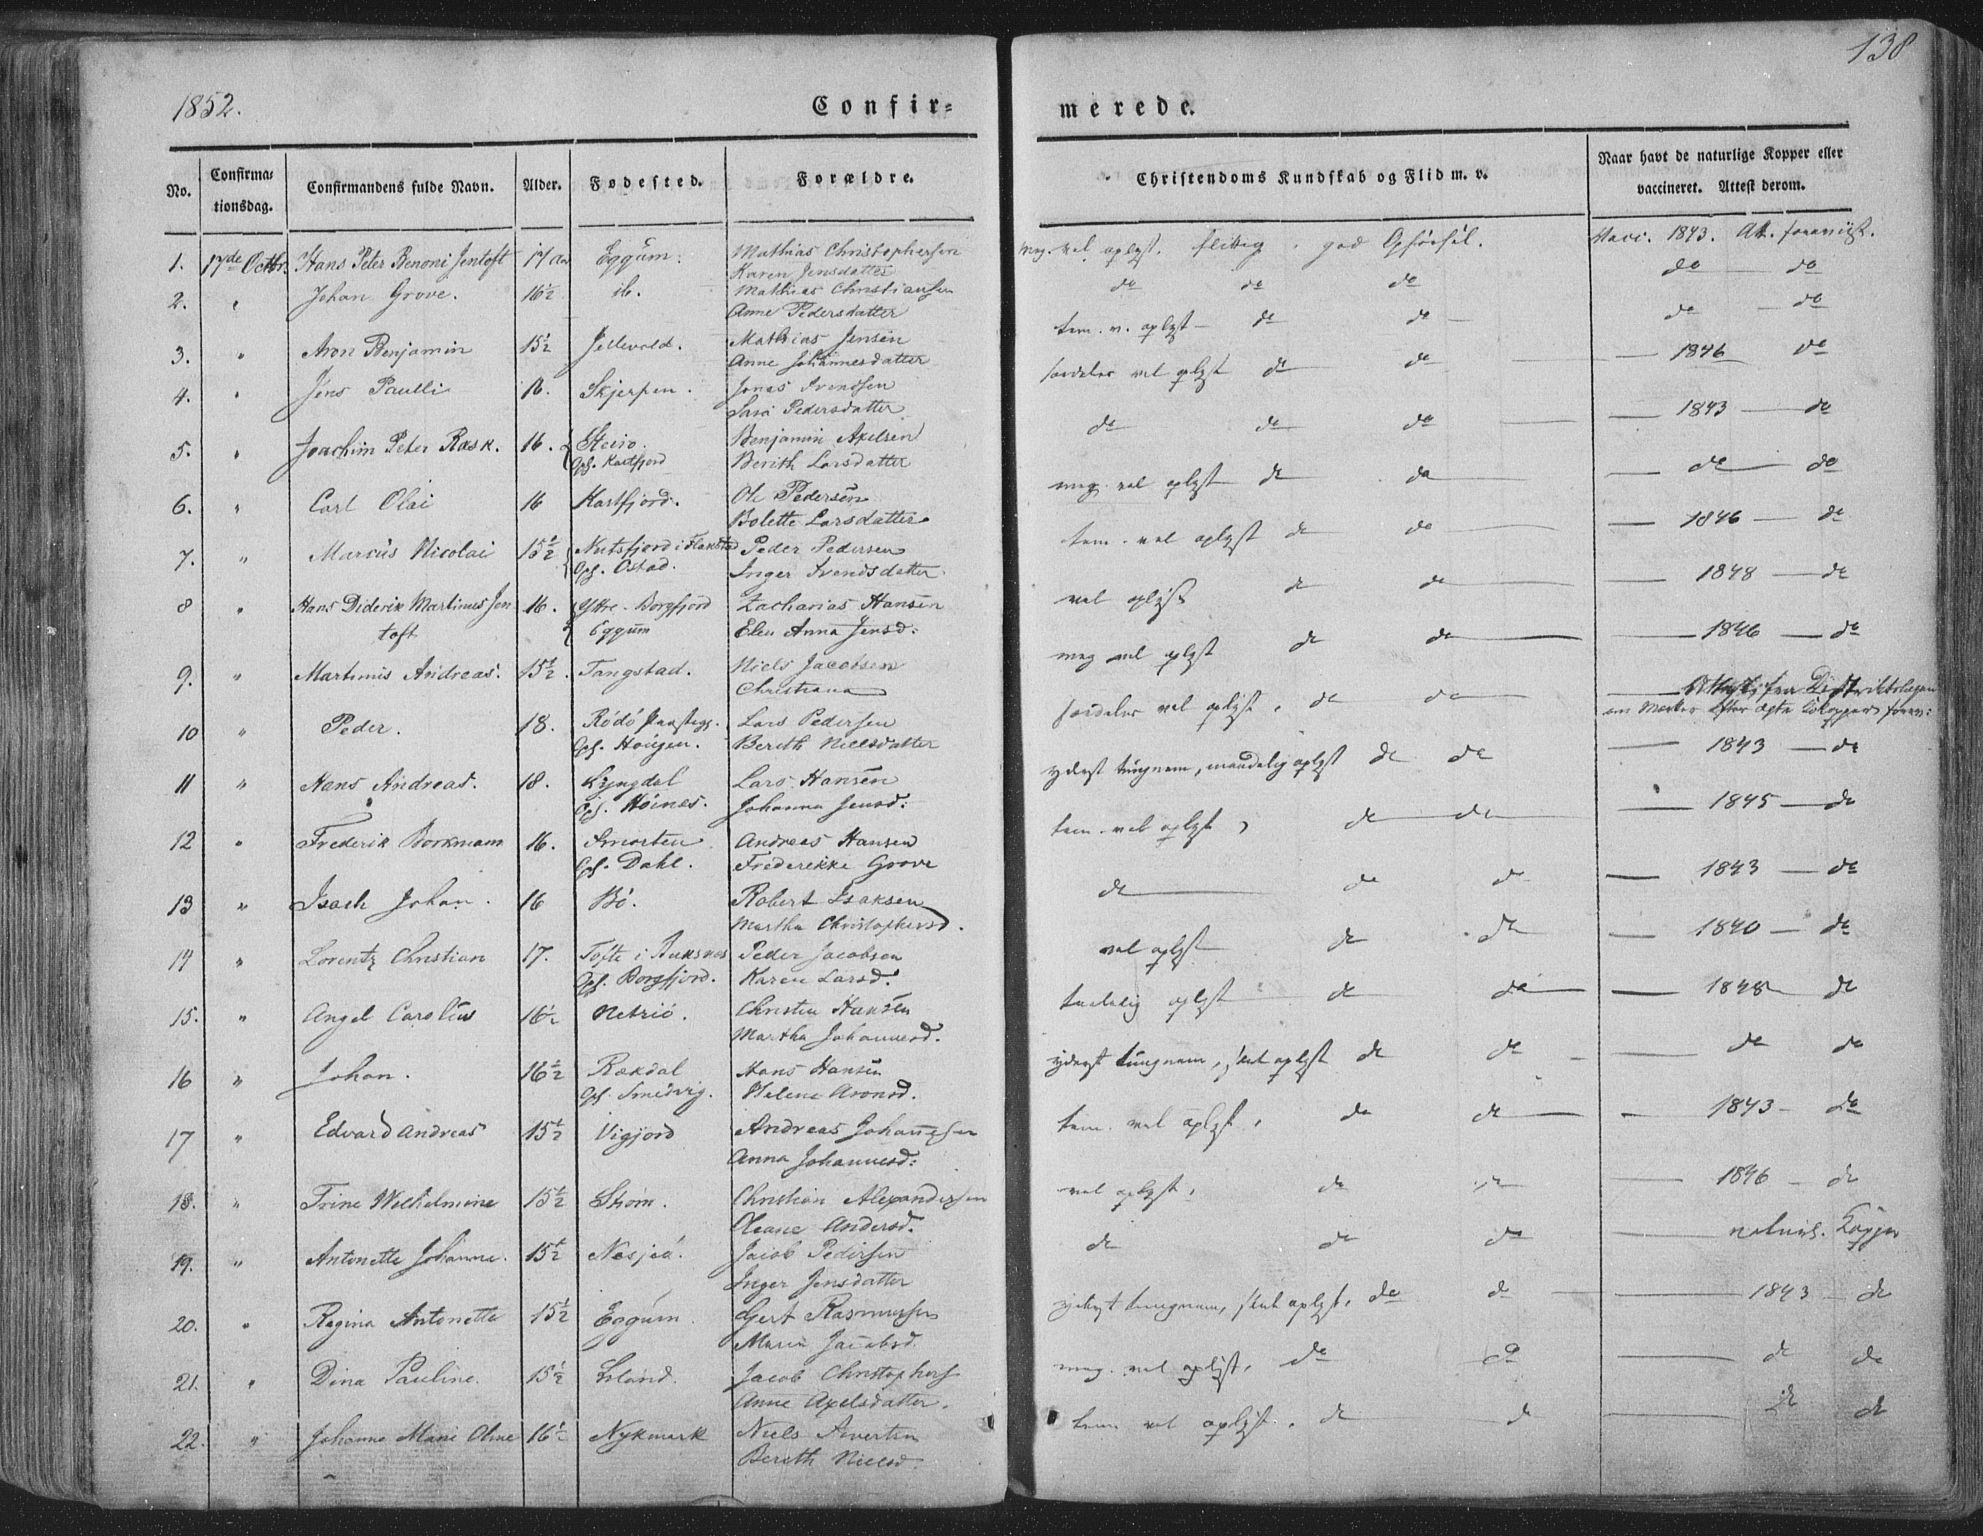 138
1852.
Confir=
merede.
No.
Confirma-
tionsdag.
Confirmandens fulde Navn.
Alder.
Fødested.
Forældre.
Christendoms Kundskab og Flid m. v.
Naar havt de naturlige Kopper eller
vaccineret. Attest derom.
1. 17de Octbr. Hans Peter Benoni Jentoft 17 Aar Eggum. Mathias Christophersen
Karen Jensdatter
meg. vel oplyst. flittig. god Opførsel. Vacc. 1843. At. foreviist.
2. " Johan Grove. 16½ ib. Mathias Christiansen
Anne Pedersdatter
do do do do do
3. " Aron Benjamin 15½ Jellevold. Mathias Jensen
Anne Johannesdatter
tem. v. oplyst do do do do
4. " Jens Paulli 16. Skjerpen. Jonas Svendsen
Sara Pedersdatter
særdeles vel oplyst do do 1846 do
5. " Joachim Peter Rask. 16. Steiro. Benjamin Axelsen
Ops. Kartfjord Berith Larsdatter
do do do 1843 do
6. " Carl Olai 16 Kartfjord. Ole Pedersen
Bolette Larsdatter
meg. vel oplyst do do do do
7. " Marcus Nicolai 15½ Nutsfjord i Flakstad Peder Pedersen
Ops. Ostad. Inger Svendsdatter
tem. vel oplyst do do 1846 do
8 " Hans Diderik Martinus Jen 16. Yttre-Borgfjord Zacharias Hansen
toft Eggum Elen Anna Jensd:
vel oplyst do do 1848 do
9. " Martinus Andreas. 15½. Tangstad. Niels Jacobsen
Christiana
meg vel oplyst do do 1846 do
10 " Peder. 18. Rödö Præstegj. Lars Pedersen
Ops. Hougen. Berith Nielsdatter
særdeles vel oplyst, do do Attest fra Distriktslægen
om Mærker efter ægte Kokopper forev:
11 " Hans Andreas. 18. Lyngdal Lars Hansen
Ops. Höinæs. Johanna Jensd:
yderst tungnem, maadelig oplyst do do 1843 do
12 " Frederik Borkmann 16. Smorten Andreas Hansen
Ops. Dahl. Frederikke Grove
tem. vel oplyst, do do 1845 do
13 " Isach Johan. 16 Bö. Robert Isaksen
Martha Christophersd.
do do do 1843 do
14 " Lorentz Christian 17. Tofte i Buksnæs Peder Jacobsen
Ops. Borgfjord. Karen Larsd.
vel oplyst do do 1840 do
15. " Angel Carolius 16½ Hetriö. Christen Hansen
Martha Johannesd.
taalelig oplyst do do 1848 do
16 " Johan. 16½ Rækdal Hans Hansen
Ops. Smedvig. Helena Aronsd.
yderst tungnem, slet oplyst do do do do
17 " Edvard Andreas 15½ Vigjord Andreas Johannesen
Anna Johannesd:
tem. vel oplyst, do do 1843 do
18. " Trine Wilhelmine 15½ Strøm. Christian Alexandersen
Oleane Andersd.
vel oplyst, do do 1846 do
19. " Antonette Johanne. 15½ Nesjeö. Jacob Pedersen
Inger Jensdatter
do do do naturl. Kopper
20. " Regina Antonette 15½ Eggum Gert Rasmussen
Maria Jacobsd.
yderst tungnem, slet oplyst. do do 1843 do
21. " Dina Pauline. 15½ Leland. Jacob Christophers
Anne Axelsdatter.
meg. vel oplyst, do do do do
22. " Johanne Marie Oline 16½ Nykmark Niels Sivertsen
Bereth Nielsd.
tem vel oplyst. do do do do